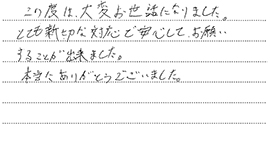 この度は、大変お世話になりました。
とても親切な対応で安心して、お願い
することが出来ました。
本当にありがとうございました。